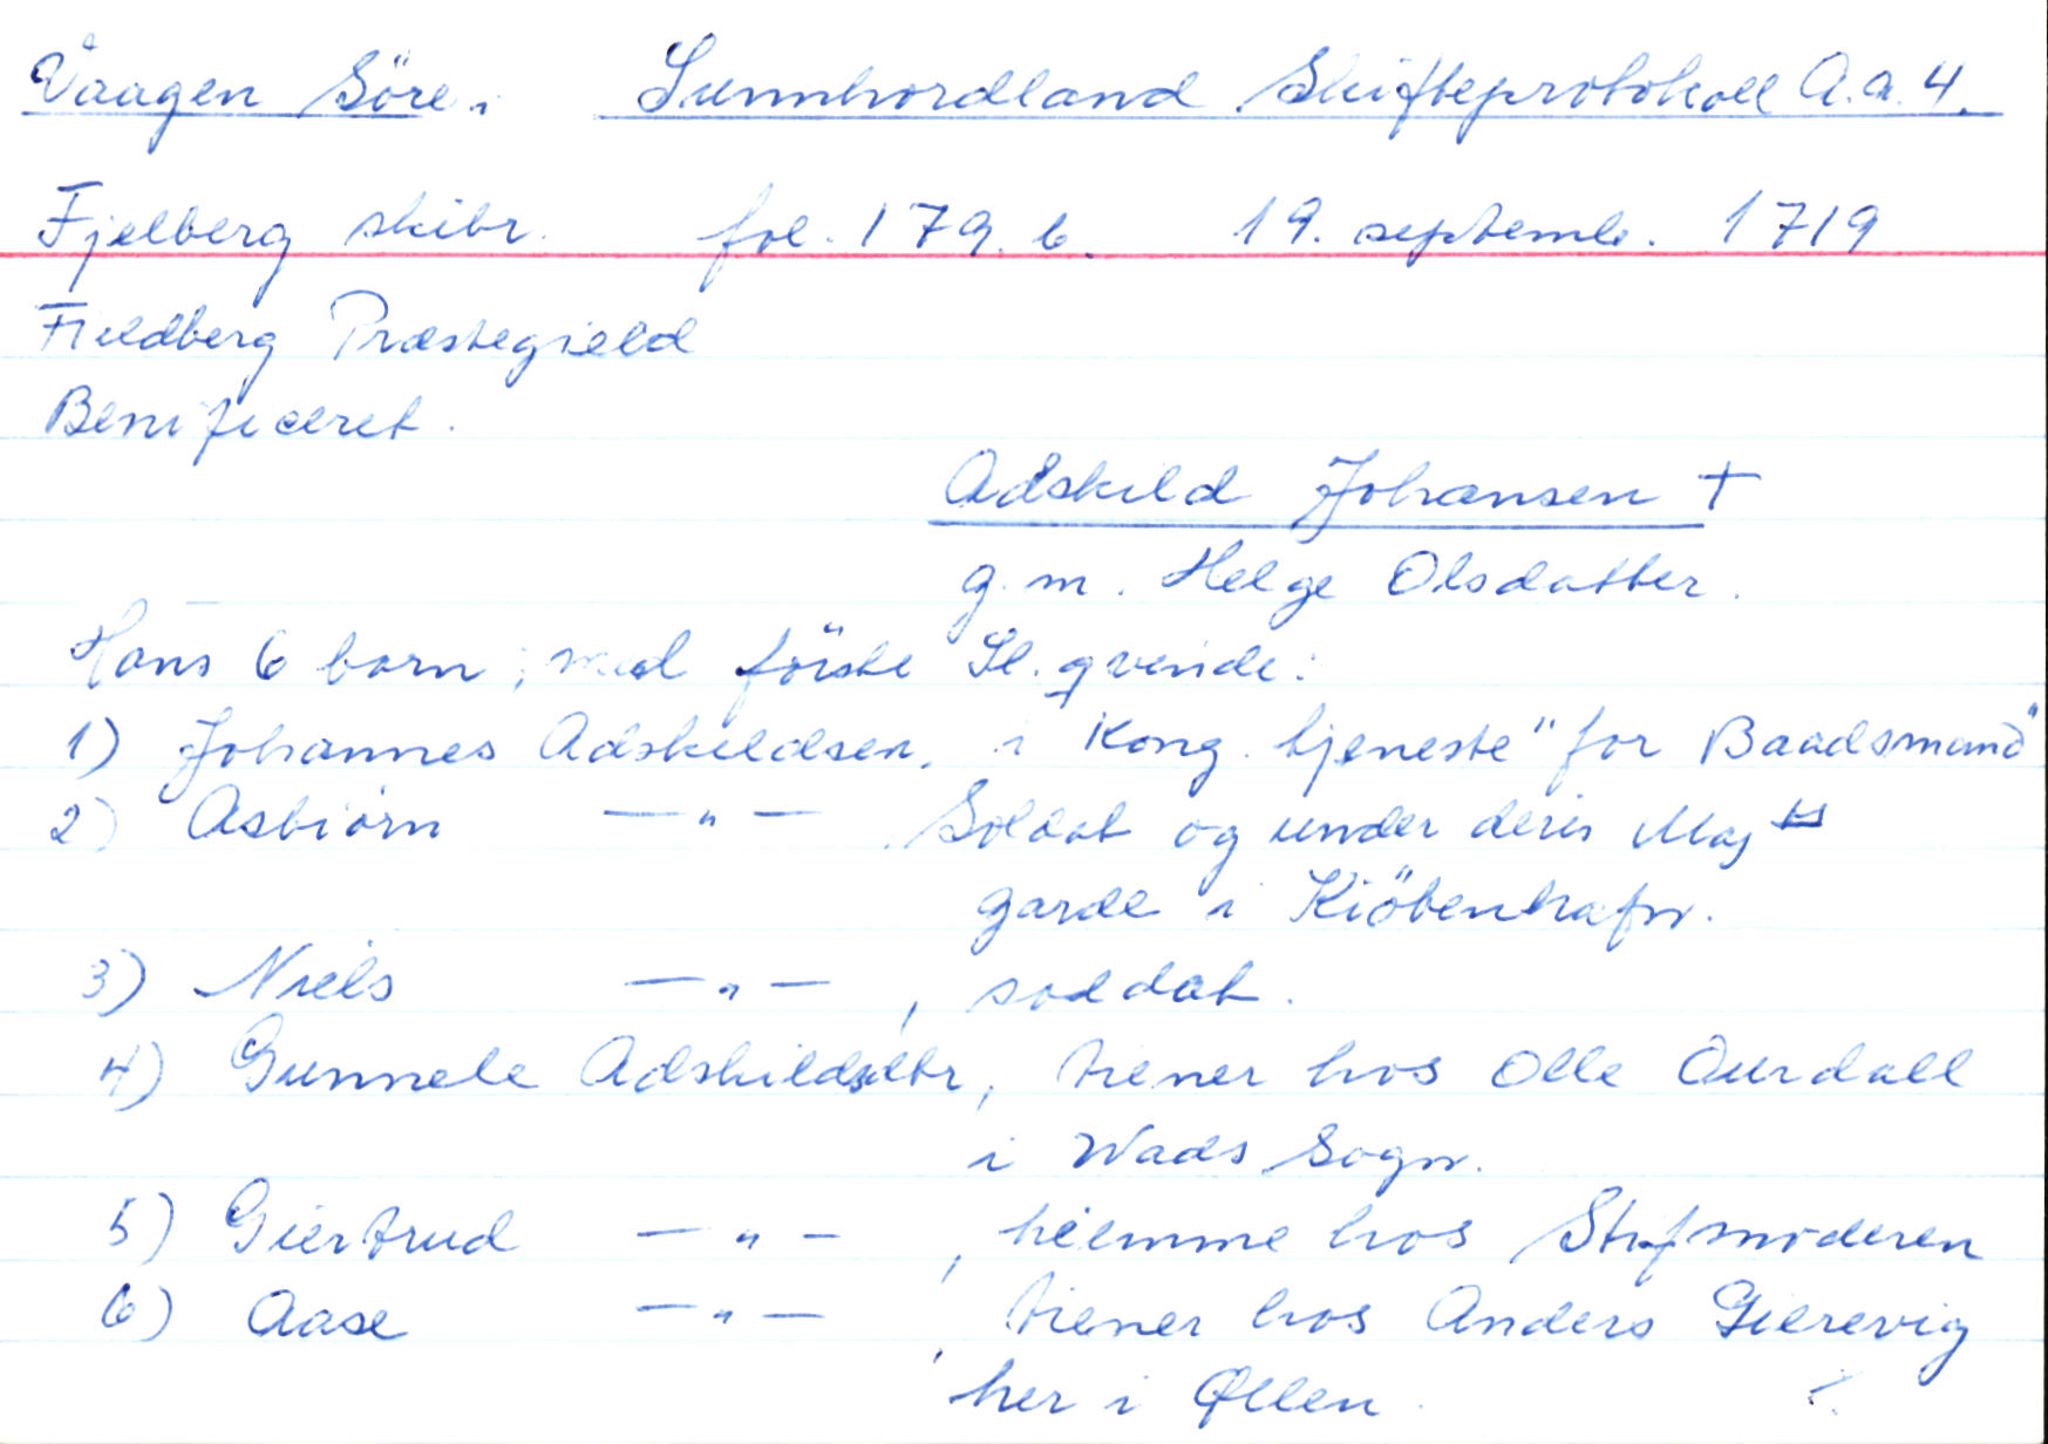 Vaagen Söre. Sunnhordland Skifteprotokoll A.a.4.
Fjelberg skibr. fol. 179.b. 19. septemb. 1719
Fieldberg Præstegield
Benificeret.
Adskild Johansen +
g.m. Helge Olsdatter.
Hans 6 born; med förste Sl. qvinde:
1) Johannes Adskildsen, i Kong. tjeneste "for Baadsmand"
2) Asbiörn —"— Soldat og under deris Maj ts
garde i Kiöbenhafn.
3) Niels —"—, soldat.
4) Gunnele Adskildsdtr, tiener hos Olle Ourdall
i Wads Sogn.
5) Giertrud —"—, hiemme hos Stifmoderen
6) Aase —"—, tiener hos Anders Gierevig
her i Øllen.